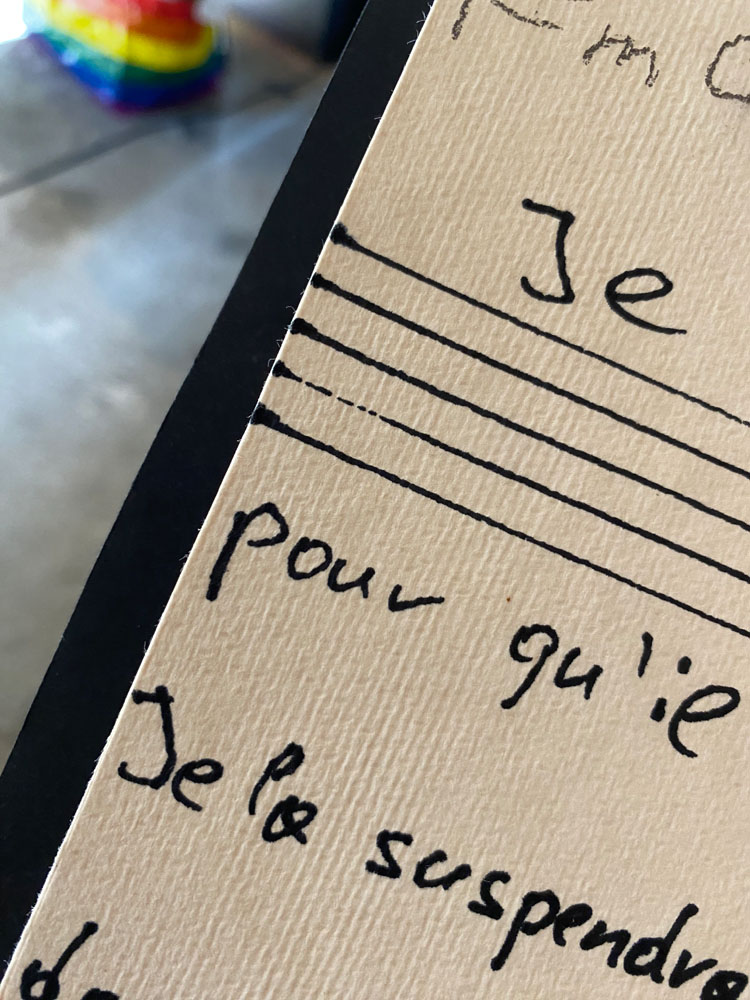 Je
pour qu'ie
Je la suspendra